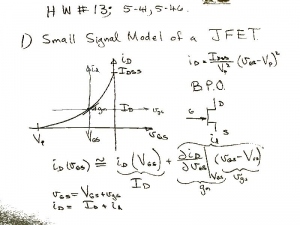 HW #13; 5-41, 5-46.
1) Small Signal Model of a JFET.
iD
id
IDSS
gm
ID
vgs
VP
VGS
vGS
iD = IDSS/VP² (vGS - VP)²
B.P.O.
D
G
S
iD(vGS) ≅ iD(VGS) + ∂iD/∂vGS (vGS - VGS)
ID
gm
vgs
vGS = VGS + vgs
iD = ID + id